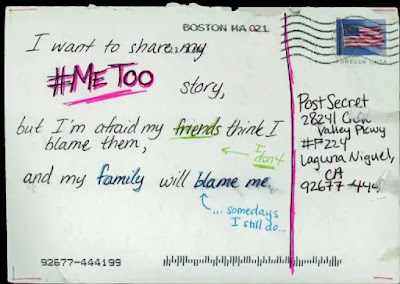 BOSTON MA 021
I want to share my
#MeToo
story,
but I'm afraid my friends think I
blame them,
I
don't
and my family will blame me.
... somedays
I still do...
FOREVER USA
Post Secret
28241 Crwn
Valley Pkwy
#F224
Laguna Niguel,
CA
92677
92677-444199